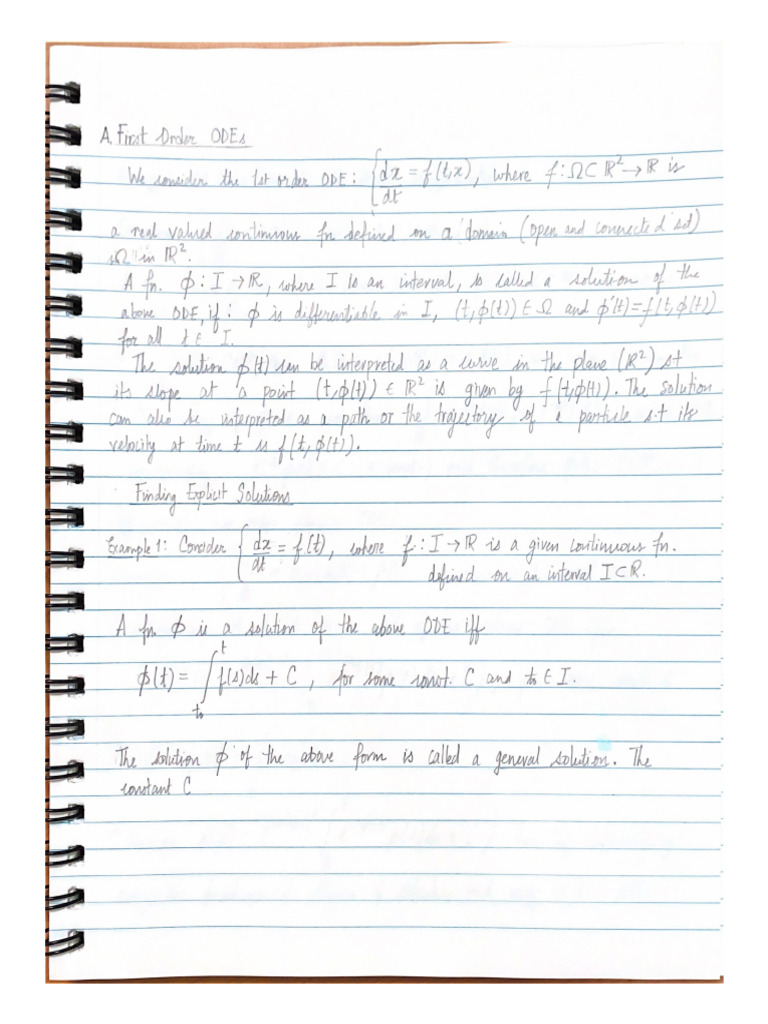 A. First Order ODEs
We consider the 1st order ODE: { dx/dt = f(t,x), where f: Ω⊂ℝ²→ℝ is
a real valued continuous fn defined on a domain (open and connected set)
"Ω" in ℝ².
A fn. ϕ: I→ℝ, where I is an interval, is called a solution of the
above ODE, if: ϕ is differentiable in I, (t,ϕ(t)) ∈ Ω and ϕ'(t)=f(t,ϕ(t))
for all t ∈ I.
The solution ϕ(t) can be interpreted as a curve in the plane (ℝ²) st
its slope at a point (t,ϕ(t)) ∈ ℝ² is given by f(t,ϕ(t)). The solution
can also be interpreted as a path or the trajectory of a particle s.t its
velocity at time t is f(t,ϕ(t)).
Finding Explicit Solutions
Example 1: Consider { dx/dt = f(t), where f: I→ℝ is a given continuous fn.
defined on an interval I⊂ℝ.
A fn ϕ is a solution of the above ODE iff
ϕ(t) = ∫_{t₀}^{t} f(s)ds + C, for some const. C and t₀ ∈ I.
The solution ϕ of the above form is called a general solution. The
constant C